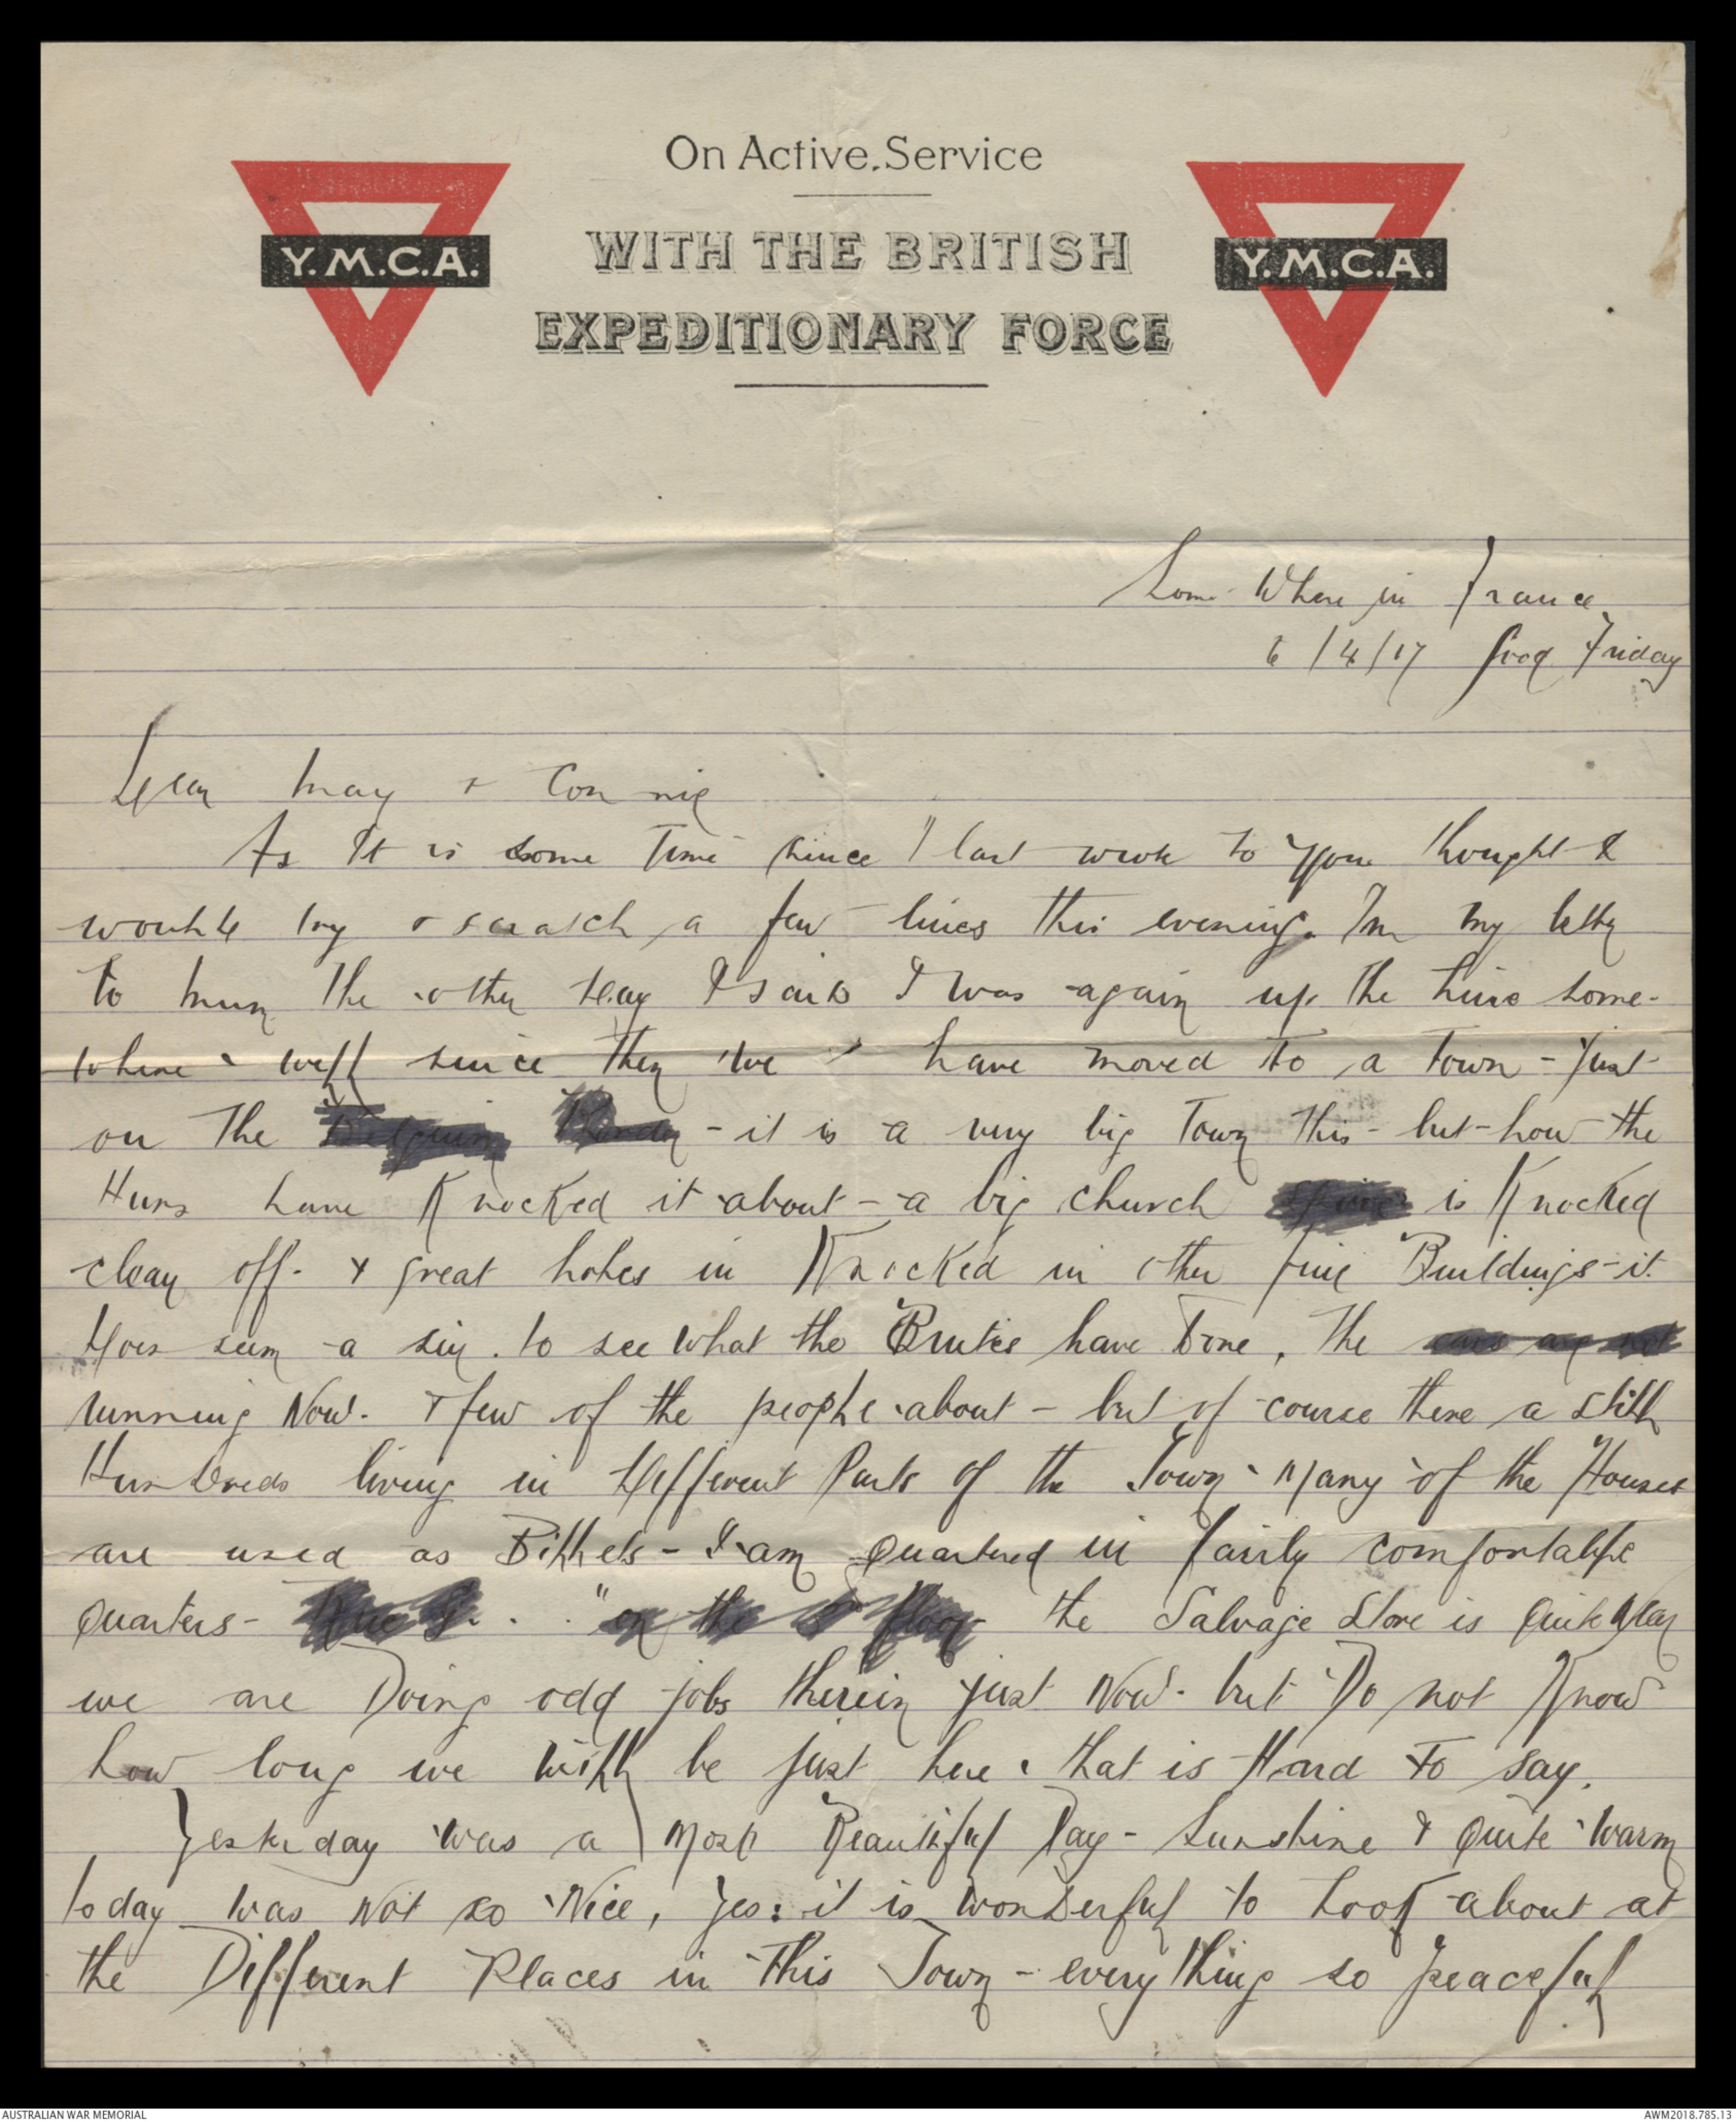 On Active Service
WITH THE BRITISH
EXPEDITIONARY FORCE
Y.M.C.A.
Y.M.C.A.
Some Where in France
6/4/17 Good Friday
Dear May & Connie
As It is some Time since I last wrote to you thought I
would try & scratch a few lines this evening. In my letter
To Mum the other day I said I was again up the Line some-
where - well since then we have moved to a Town - just
on The Belgium - it is a very big Town this - but - how the
Huns have Knocked it about - a big church is Knocked
clean off. & great holes in Knocked in other fine Buildings - it.
does seem a sin. to see what the Brutes have Done, The
running Now. & few of the people about - but of course there a still
Hundreds living in Different Parts of the Town - Many of the Houses
are used as Billets - I am Quartered in fairly comfortable
Quarters - on the floor the Salvage Store is Quite Near
we are Doing odd jobs therein just Now. but Do not Know
how long we will be just here. that is Hard To say.
Yesterday was a Most Beautiful Day - Sunshine & Quite Warm
today was Not so Nice, Yes: it is wonderful to Look about at
the Different Places in This Town - everything so peaceful
AUSTRALIAN WAR MEMORIAL
AWM2018.785.13